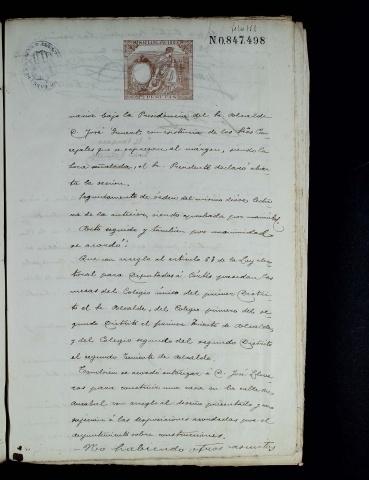 N 0.847.498
narios bajo la Presidencia del Sr. Alcalde
D. José con asistencia de los Sres Con-
cejales que se expresan al margen, siendo la
hora señalada, el Sr. Presidente declaró abier-
ta la sesion.
Seguidamente de órden del mismo diose lectu-
ra de la anterior, siendo aprobada por
Acto seguido y tambien por unanimidad
se acordó:
Que con arreglo al artículo de la Ley elec-
toral para Diputados á Córtes presidan las
mesas del Colegio único del primer Distri-
to el Sr. Alcalde, del Colegio primero del se-
gundo Distrito el primer Teniente de Alcalde,
y del Colegio segundo del segundo Distrito
el segundo Teniente de Alcalde.
Tambien se acordó á D. José
para construir una casa en la calle de
con arreglo al diseño presentado y con
sujecion á las disposiciones acordadas por el
Ayuntamiento sobre construcciones.
No habiendo otros asuntos